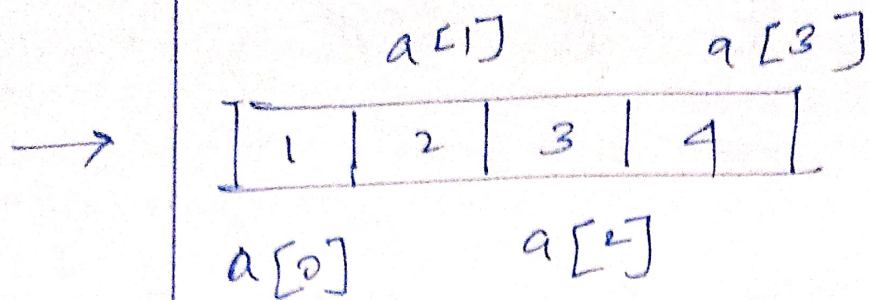 a[1] a[3]
1 2 3 4
a[0] a[2]